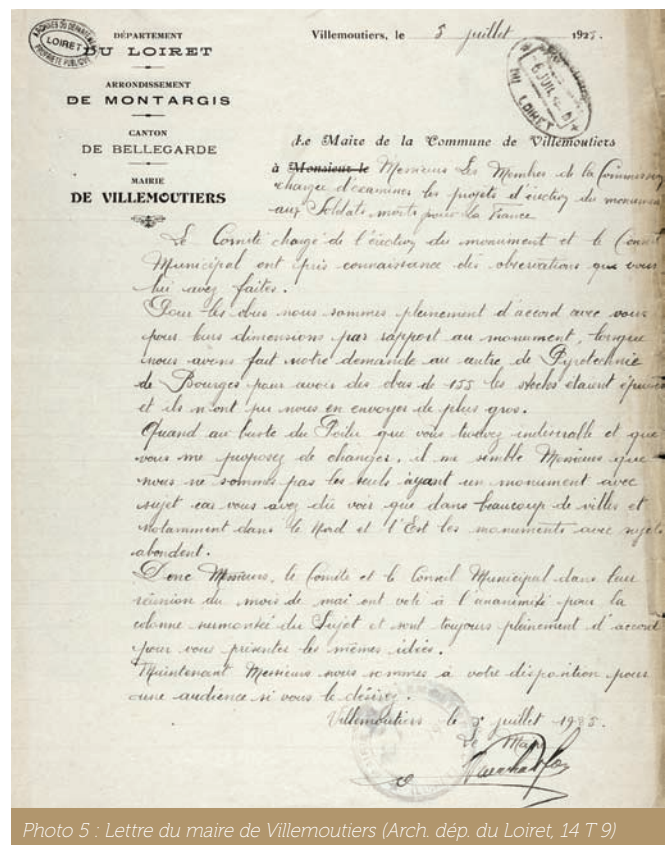 ARCHIVES DU DÉPARTEMENT
LOIRET
PROPRIÉTÉ PUBLIQUE
DÉPARTEMENT
DU LOIRET
ARRONDISSEMENT
DE MONTARGIS
CANTON
DE BELLEGARDE
MAIRIE
DE VILLEMOUTIERS
Villemoutiers, le 5 juillet 1925.
6 JUIL
DU LOIRET
Le Maire de la Commune de Villemoutiers
à Monsieur le Messieurs Les Membres de la Commission
chargée d'examiner les projets d'érection du monument
aux Soldats morts pour la France
Le Comité chargé de l'érection du monument et le Conseil
Municipal ont pris connaissance des observations que vous
lui avez faites.
Pour les obus nous sommes pleinement d'accord avec vous
pour leurs dimensions par rapport au monument, lorsque
nous avons fait notre demande au centre de Pyrotechnie
de Bourges pour avoir des obus de 155 les stocks étaient épuisés
et ils n'ont pu nous en envoyer de plus gros.
Quand au buste du Poilu que vous trouvez indésirable et que
vous me proposez de changer, il me semble Messieurs que
nous ne sommes pas les seuls ayant un monument avec
sujet car vous avez dû voir que dans beaucoup de villes et
notamment dans le Nord et l'Est les monuments avec sujets
abondent.
Donc Messieurs, le Comité et le Conseil Municipal dans leur
réunion du mois de mai ont voté à l'unanimité pour la
colonne surmontée du Sujet et sont toujours pleinement d'accord
pour vous présenter les mêmes idées.
Maintenant Messieurs nous sommes à votre disposition pour
une audience si vous le désirez.
Villemoutiers le 5 juillet 1925.
Le Maire
Photo 5 : Lettre du maire de Villemoutiers (Arch. dép. du Loiret, 14 T 9)